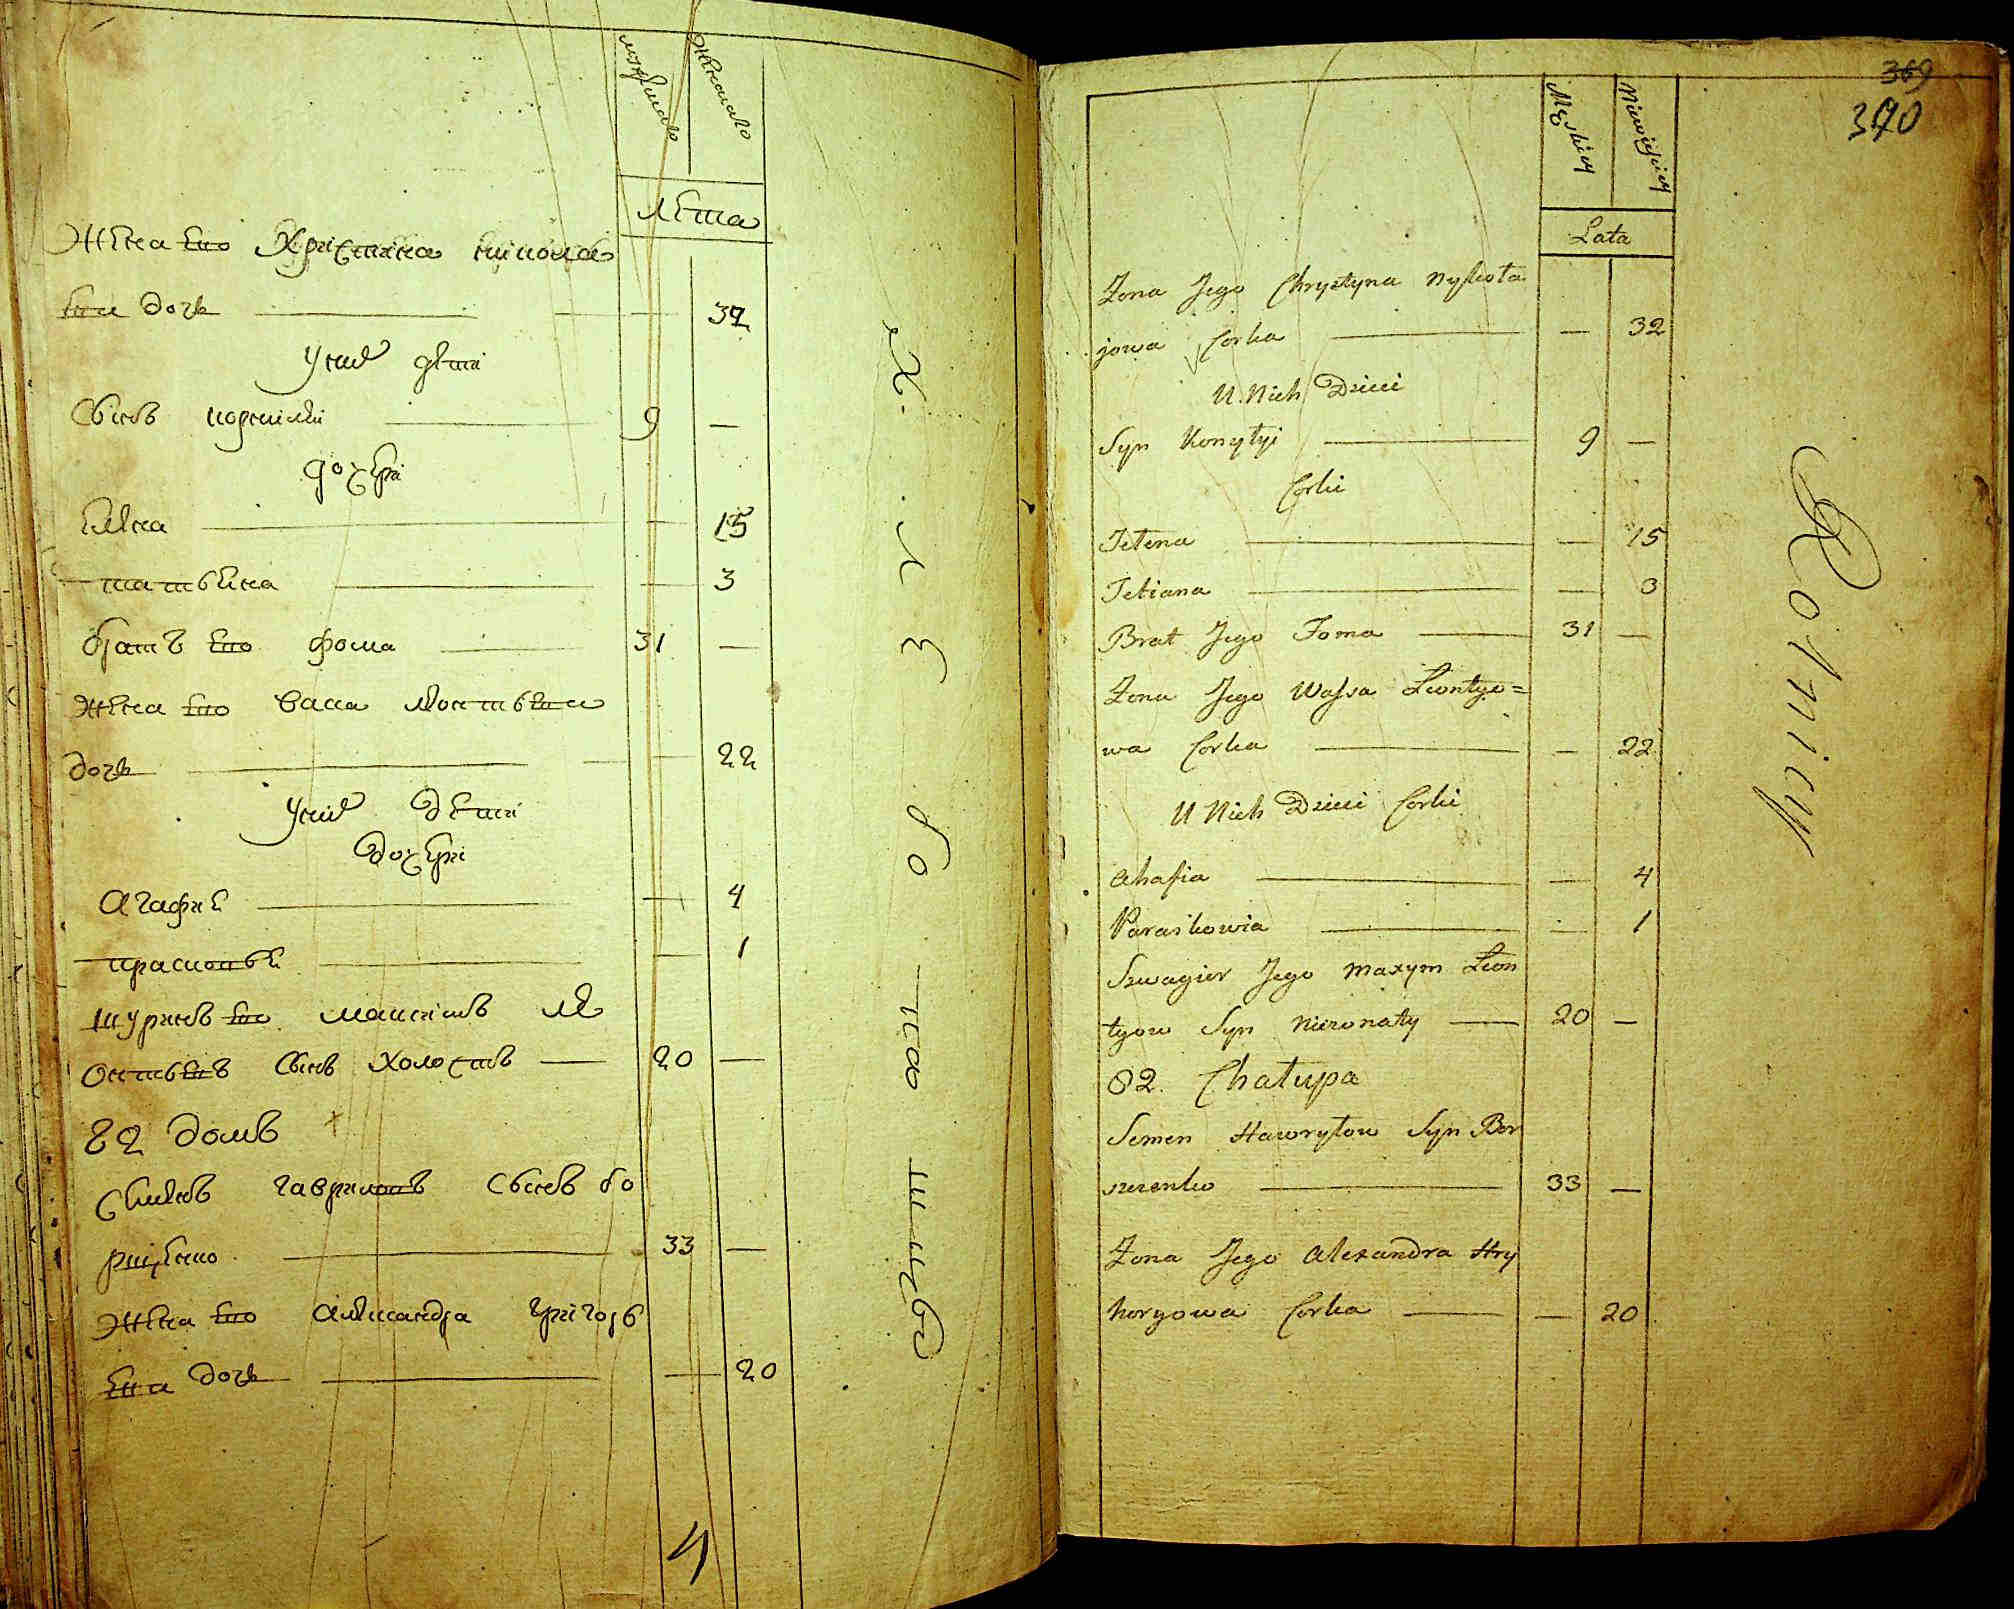 мужеска женска
лета
Жена его Христина николае
ва дочь 32
У них дети
Сынъ корнилий 9 —
дочери
Елена — 15
татьяна — 3
братъ его фома 31 —
Жена его васа Леонтьева
дочь — 22
У них дети
дочери
Агафия — 4
прасковья — 1
шуринъ его максимъ Ле
онтьевъ Сынъ холостъ 20 —
82 домъ
Семенъ гавриловъ сынъ бо
рщенко 33 —
Жена его александра григорь
ева дочь — 20
хлебопашцы
4
369
370
Męskiey Niewieściey
Lata
Żona Jego Chrystyna Mykoła
jowa Corka — 32
U Nich Dzieci
Syn Konyłyi 9 —
Corki
Jełena — 15
Tetiana — 3
Brat Jego Foma 31 —
Żona Jego Wassa Leontye=
wa Corka — 22
U Nich Dzieci Corki
Ahafia — 4
Paraskowia — 1
Szwagier Jego Maxym Leon
tyow Syn Nieżonaty 20 —
82. Chałupa
Semen Hawryłow Syn Bor
szczenko 33 —
Żona Jego Alexandra Hry
horyowa Corka — 20
Rolnicy